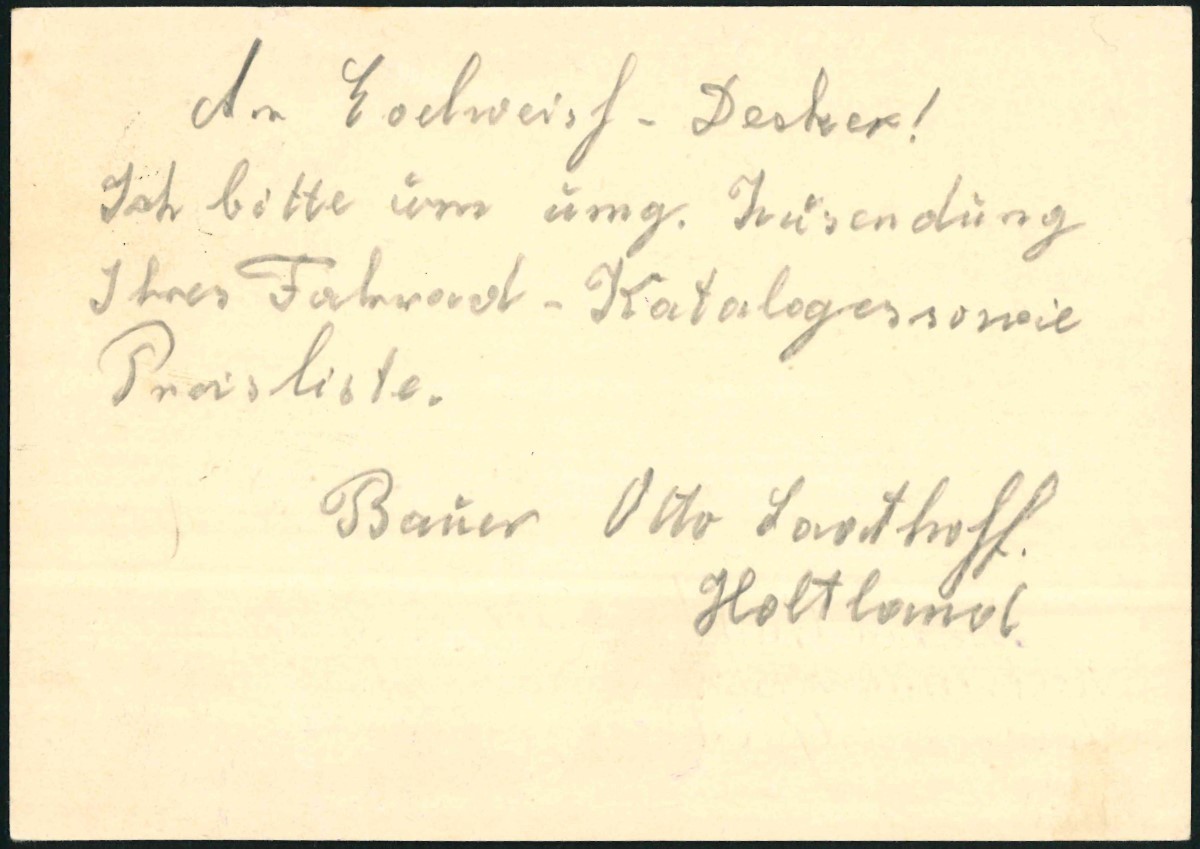 An Edelweiß - Decker!
Ich bitte um umg. Zusendung
Ihres Fahrrad - Kataloges sowie
Preisliste.
Bauer Otto Saathoff.
Holtland